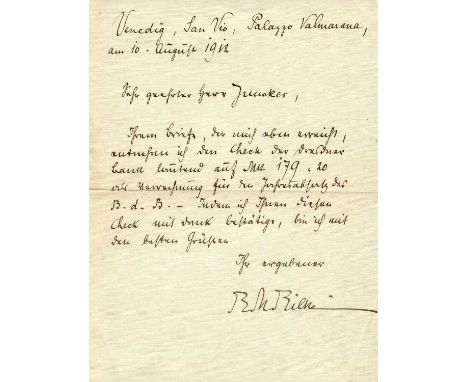 Venedig, San Vio, Palazzo Valmarana,
am 10. August 1912
Sehr geehrter Herr Juncker,
Ihrem Briefe, der mich eben erreicht,
entnehme ich den Check der Dresdner
Bank lautend auf Mk 179,20
als Verrechnung für den Jahresabsatz des
B. d. B. – Indem ich Ihnen diesen
Check mit Dank bestätige, bin ich mit
den besten Grüßen
Ihr ergebener
RMRilke